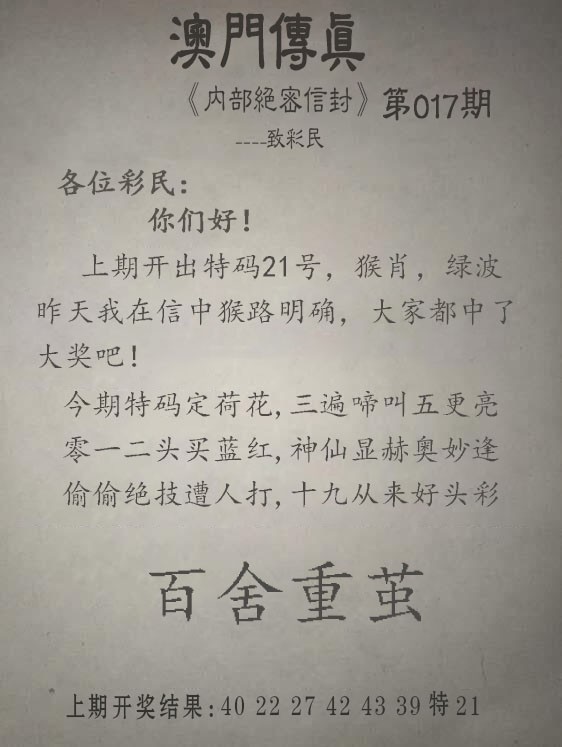 澳門傳眞
《内部絕密信封》第017期
----致彩民
各位彩民:
你们好!
上期开出特码21号, 猴肖, 绿波
昨天我在信中猴路明确, 大家都中了
大奖吧!
今期特码定荷花,三遍啼叫五更亮
零一二头买蓝红,神仙显赫奥妙逢
偷偷绝技遭人打,十九从来好头彩
百舍重茧
上期开奖结果:40 22 27 42 43 39 特 21